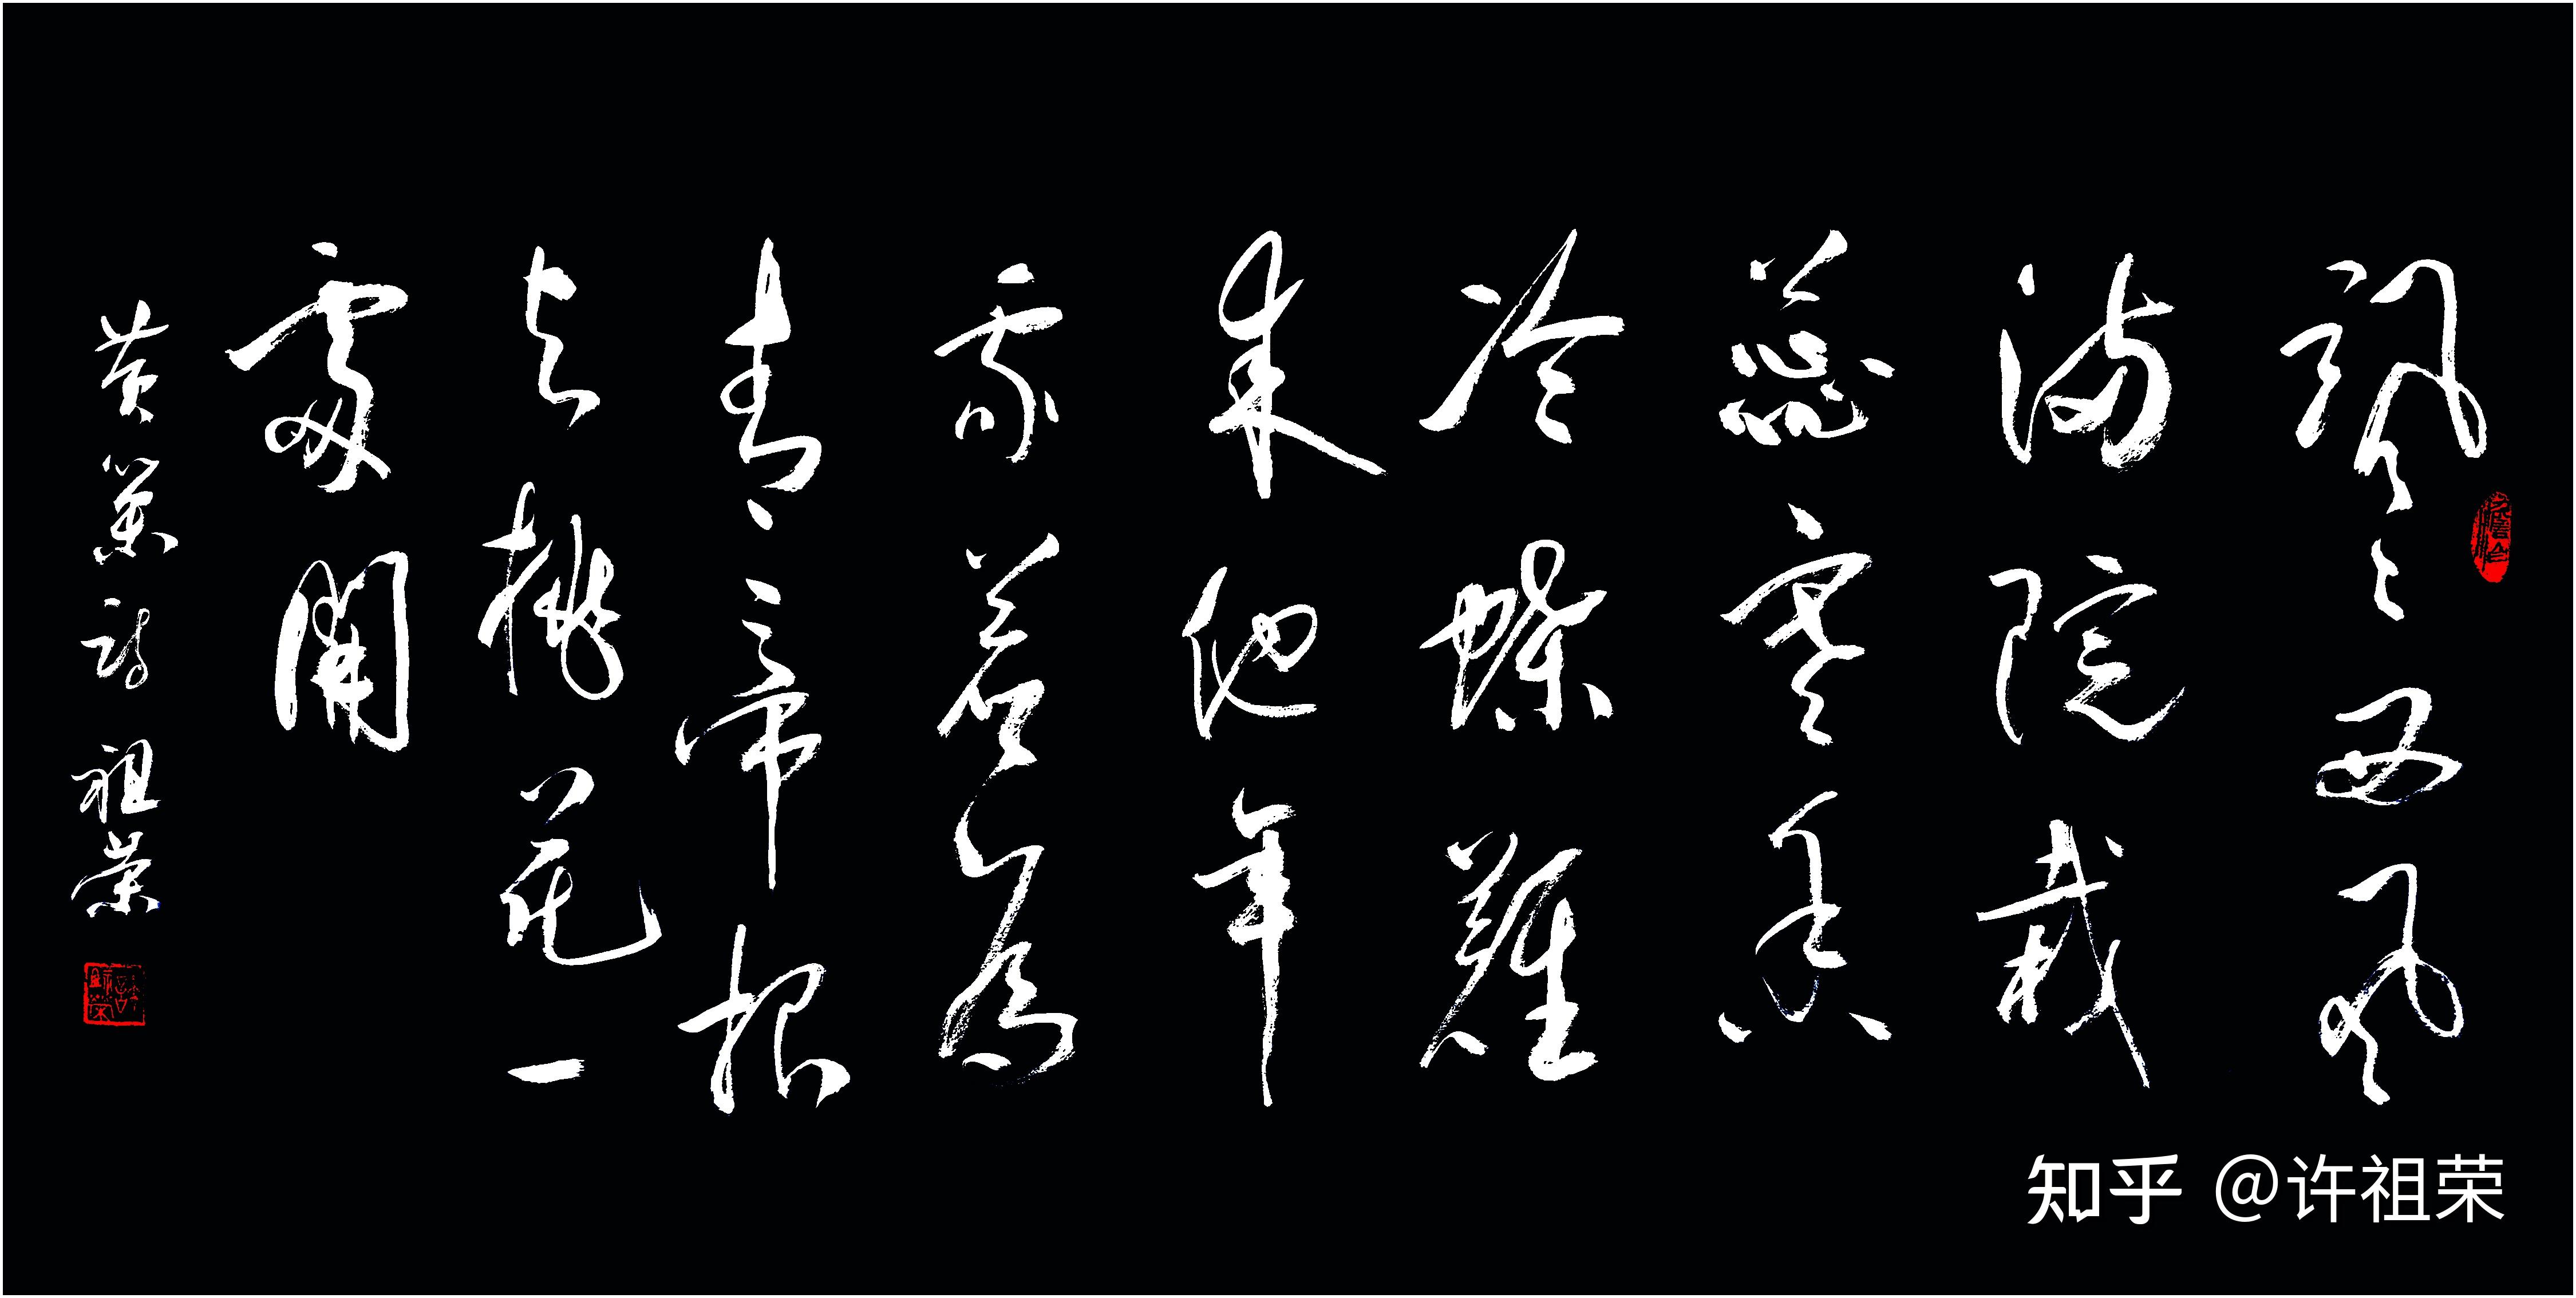 颯々西風
滿院栽
蕊寒香
冷蝶難
來他年
我若為
青帝报
与桃花一
處開
黄巢詩 祖荣
知乎 @许祖荣